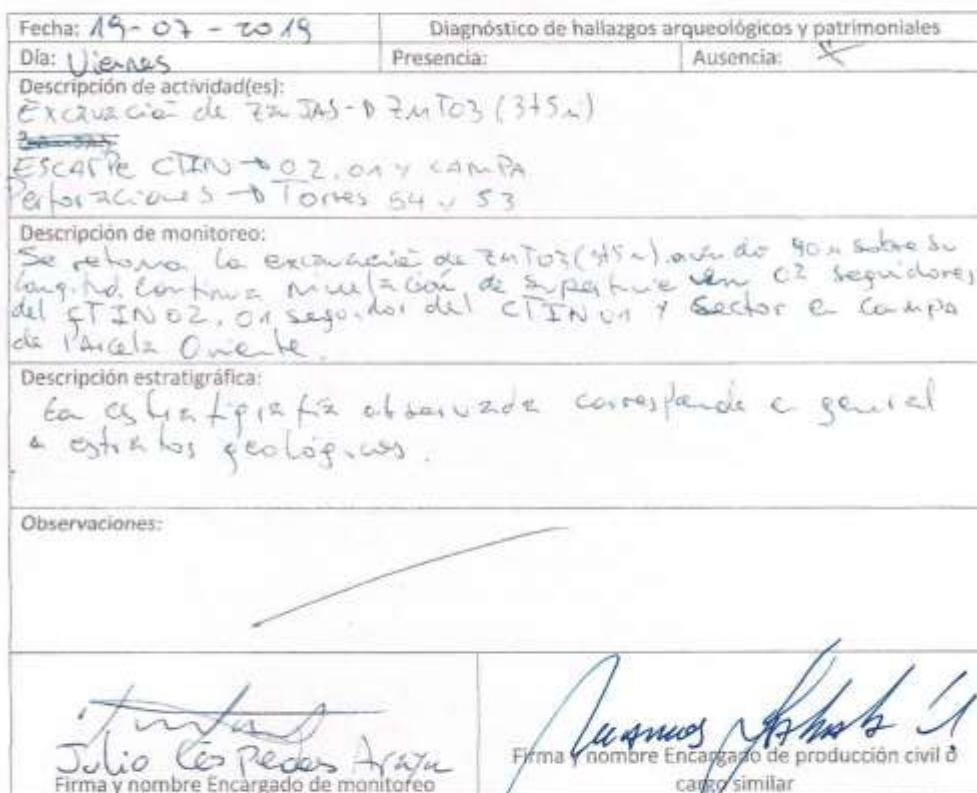 Fecha: 19-07-2019 Diagnóstico de hallazgos arqueológicos y patrimoniales
Día: Viernes Presencia: Ausencia: X
Descripción de actividad(es):
Excavación de ZANJAS → ZMT03 (375m)
ESCARPE CTIN → 02, 01 y CAMPA
Perforaciones → Torres 54 y 53
Descripción de monitoreo:
Se retoma la excavación de ZMT03 (375m) 40m sobre su
longitud. Continua nivelación de superficie en 02 seguidores
del CTIN02, 01 seguidor del CTIN01 y sector en campa
de Parcela Oriente.
Descripción estratigráfica:
La estratigrafía observada corresponde en general
a estratos geológicos.
Observaciones:
Julio Céspedes Araya
Firma y nombre Encargado de monitoreo
Firma y nombre Encargado de producción civil ó
cargo similar